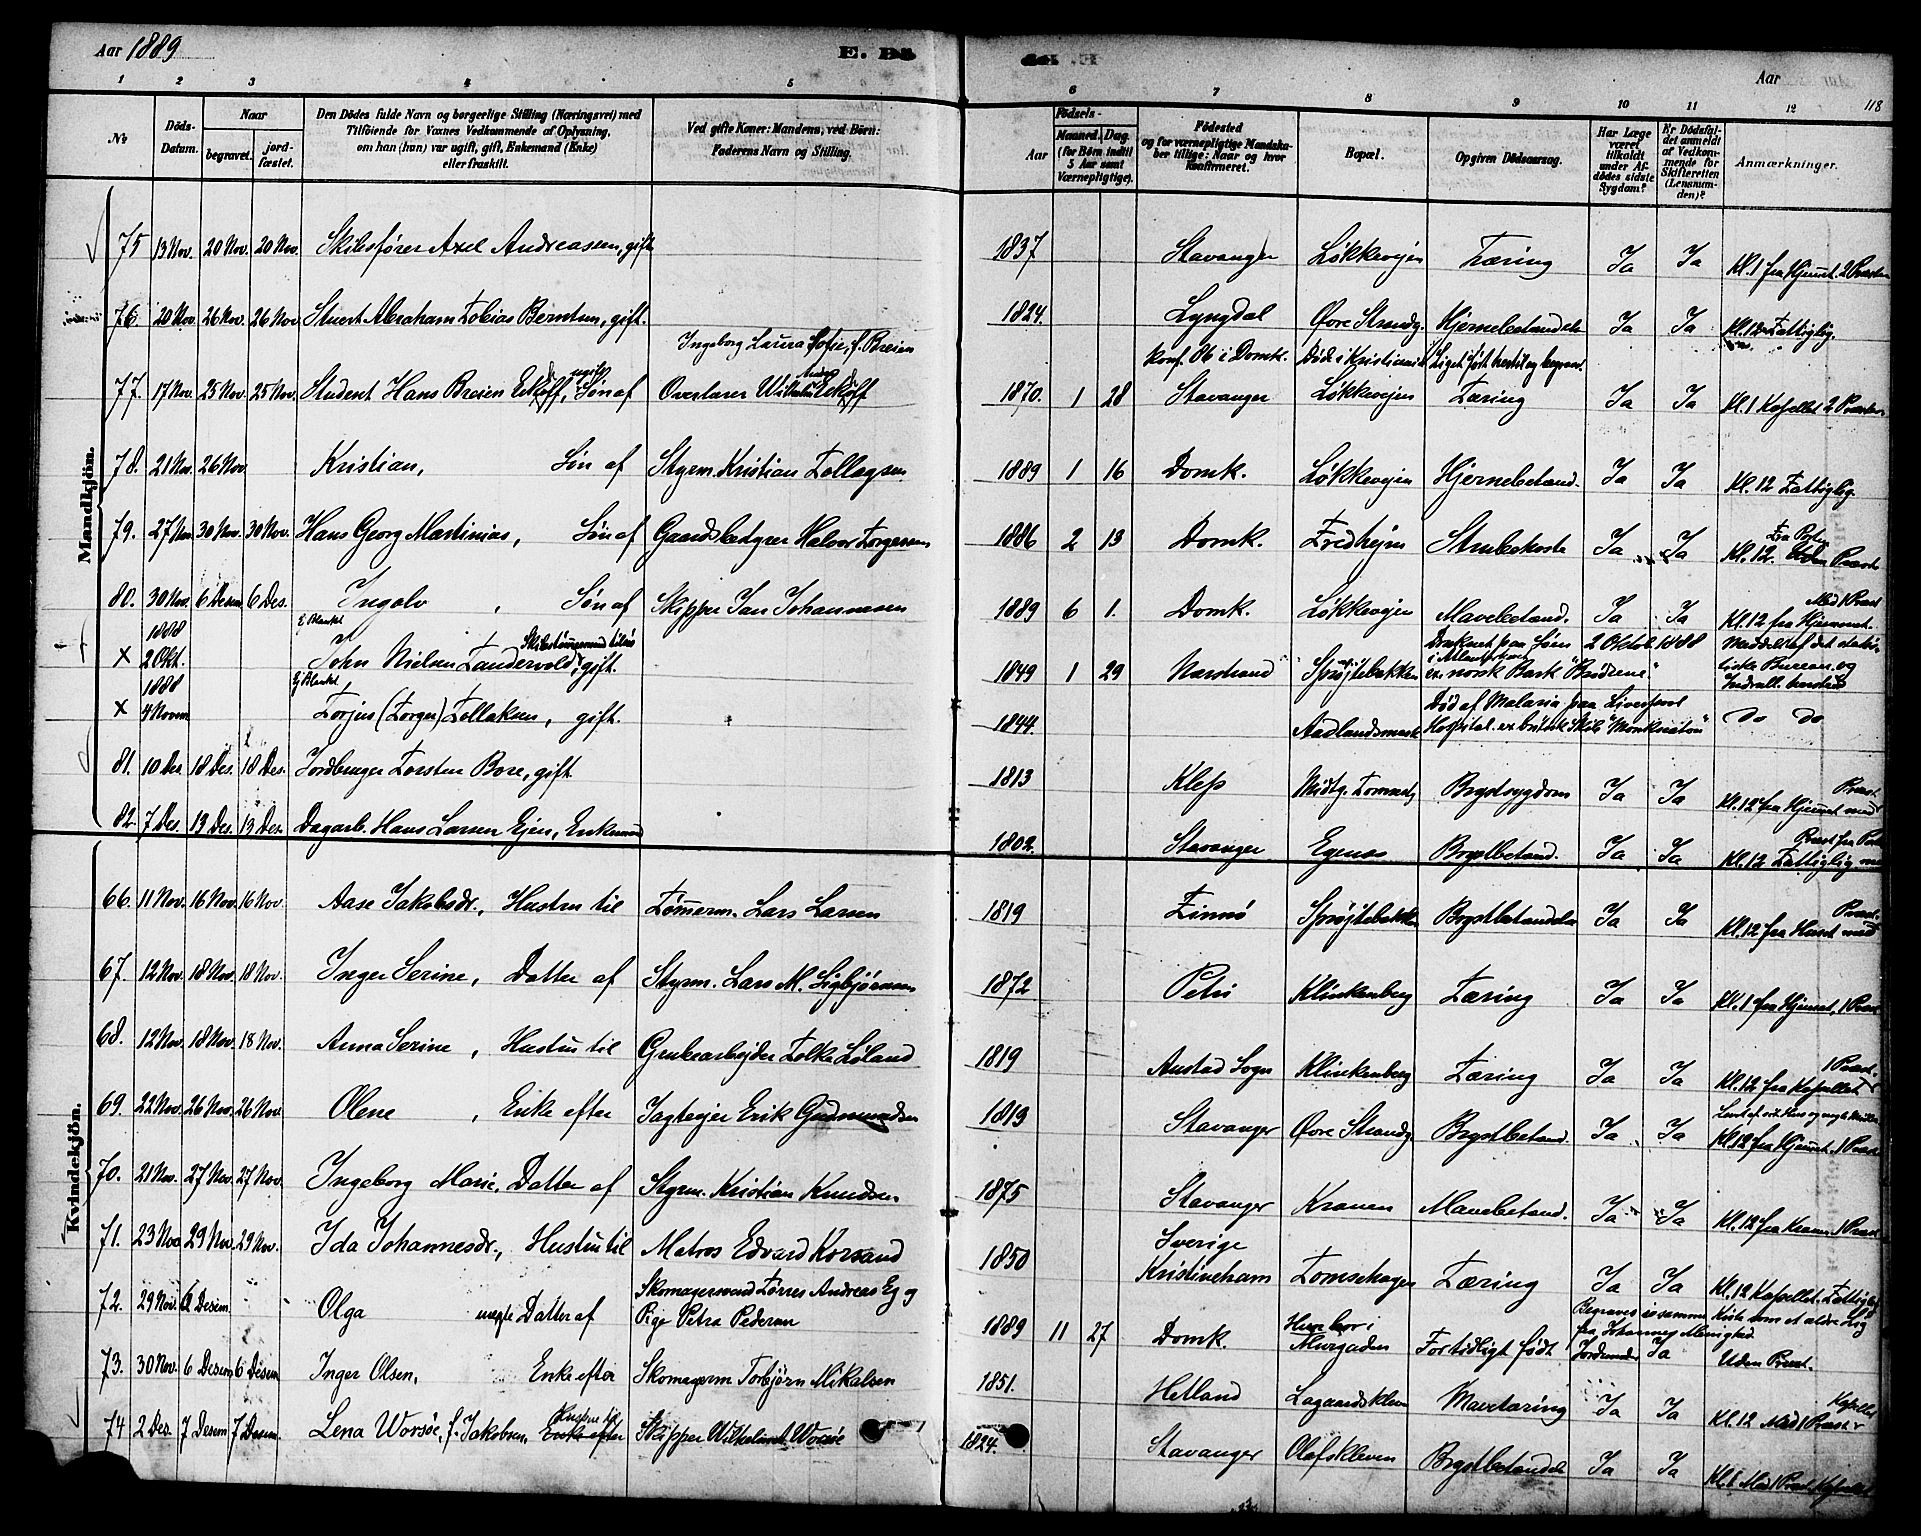 Aar 1889
E. Dö
Aar
118
1 2 3 4 5 6 7 8 9 10 11 12
No
Döds-Datum.
Naar
begravet.
jord-fæstet.
Den Dödes fulde Navn og borgerlige Stilling (Næringsvei) med
Tilföiende for Voxnes Vedkommende af Oplysning,
om han (hun) var ugift, gift, Enkemand (Enke)
eller fraskilt.
Ved gifte Koner: Mandens, ved Börn:
Faderens Navn og Stilling.
Födsels-
Aar
Maaned. Dag.
(for Börn indtil
5 Aar samt
Værnepligtige).
Födested
og for værnepligtige Mandska-
ber tillige: Naar og hvor
Konfirmeret.
Bopæl.
Opgiven Dödsaarsag.
Har Læge
været
tilkaldt
under Af-
dödes sidste
Sygdom?
Er Dödsfal-
det anmeldt
af Vedkom-
mende for
Skifteretten
(Lensman-
den)?
Anmærkninger.
Mandkjön.
75 13 Nov. 20 Nov. 20 Nov. Skibsfører Axel Andreassen, gift 1837 Stavanger Løkkevejen Tæring Ja Ja Kl. 1 fra Hjemmet. 2 Præster
76. 20 Nov. 26 Nov. 26 Nov. Stuert Abraham Tobias Berntsen, gift. 1824. Lyngdal Øvre Strandg. Hjernebetændelse Ja Ja Kl. 12 Fattiglig.
Ingeborg Laura Sofie, f. Breien konf. 86 i Domk. Død i Kristiania Liget ført hertil og begravet
77. 17 Nov. 25 Nov. 25 Nov. Student Hans Breien Eckhoff, ugift Søn af Overlærer Wilhelm Eckhoff 1870. 1 28 Stavanger Løkkevejen Tæring Ja Ja Kl. 1 Kapellet 2 Præster
78. 21 Nov. 26 Nov Kristian, Søn af Styrm. Kristian Tollagsen 1889 1 16 Domk. Løkkevejen Hjernebetænd. Ja Ja Kl. 12 Fattiglig.
79. 27 Nov. 30 Nov. 30 Nov. Hans Georg Martinius, Søn af Gaardsbestyrer Halvor Torgersen 1886 2 13 Domk. Fredhejm Strubehoste Ja Ja Kl. 12. Uden Præst
80. 30 Nov. 6 Desem 6 Des. Ingolv, Søn af Skipper Jan Johannesen 1889 6 1. Domk. Løkkevejen Mavebetænd. Ja Ja Kl. 12 fra Hjemmet. Med 1 Præst
x 1888 2 Okt. Ej Blanket John Nielsen Tandervold, Skibstømmermand tilsøs gift. 1849 1 29 Narstrand Sprøjtebakken Druknet paa Søen 2 Oktob. 1888 i Atlanterhavet ex norsk Bark "Brødrene" Meddelt af det statistiske Bureau og
x 1888 4 Novem Ej Blanket Torjus (Torger) Tollaksen, gift. 1844. Aadlandsmark Død af Malaria paa Liverpool Hospital. ex britisk Skib do do
81. 10 Des 18 Des. 18 Des. Jordbruger Torsten Bore, gift. 1813 Klep Brystsygdom Ja Ja Kl. 12 fra Hjemmet med Præst
82. 7 Des. 13 Des. 13 Des. Dagarb. Hans Larsen Ejen, Enkemand 1802. Stavanger Egenæs Brystbetænd. Ja Ja Kl. 12 Fattiglig. med Præst
Kvindekjön.
66. 11 Nov. 16 Nov. 16 Nov. Aase Jakobsdr., Hustru til Tømmerm. Lars Larsen 1819 Finnø Sprøjtebakken Brystbetændelse Ja Ja Kl. 12 fra Huset med Præst.
67. 12 Nov. 18 Nov. 18 Nov. Inger Serine, Datter af Styrm. Lars M. Sigbjørnsen 1872 Petri Klinkenberg Tæring Ja Ja Kl. 1 fra Hjemmet, 1 Præst
68. 12 Nov. 18 Nov. 18 Nov. Anna Serine, Hustru til Grubearbejder Tolke Løland 1819 Austad Sogn Klinkenberg Tæring Ja Ja Kl. 12 fra Kapellet 1 Præst.
69. 22 Nov. 26 Nov. 26 Nov. Olene, Enke efter Jagtejer Erik Gudmundsen 1819 Stavanger Øvre Strandg. Brystbetænd. Ja Ja Kl. 12 fra Hjemmet, 1 Præst
70. 21 Nov. 27 Nov. 27 Nov. Ingeborg Marie, Datter af Styrm. Kristian Knudsen 1875 Stavanger Kranen Mavebetænd. Ja Ja Kl. 12 fra Kranen, 1 Præst
71. 23 Nov 29 Nov. 29 Nov. Ida Johannesdr., Hustru til Matros Edvard Korsand 1850 Sverige Kristineham Tomsehagen Tæring Ja Ja Kl. 12 Kapellet. Fattiglig
72. 29 Nov. 6 Desem. Olga uægte Datter af Skomagersvend Tørres Andreas Eg og Pige Petra Pedersen 1889 11 27 Domk. Murgaden For tidligt født. Jordmoder Ja Begraves i samme Kiste som et ældre Lig Uden Præst.
73. 30 Nov. 6 Desem 6 Desem Inger Olsen, Enke efter Skomagerm. Torbjørn Mikalsen 1851. Hetland Lagaardskleven Mavetæring Ja Ja Kl. 12 Med 1 Præst Kapellet
74 2 Des. 7 Desem. 7 Desem. Lena Worsøe, f. Jakobsen, Hustru til Enke efter Skipper Wilhelm Worsøe 1824. Stavanger Olafskleven Brystbetændelse Ja Ja Kl. 1 Med 1 Præst. Kapellet